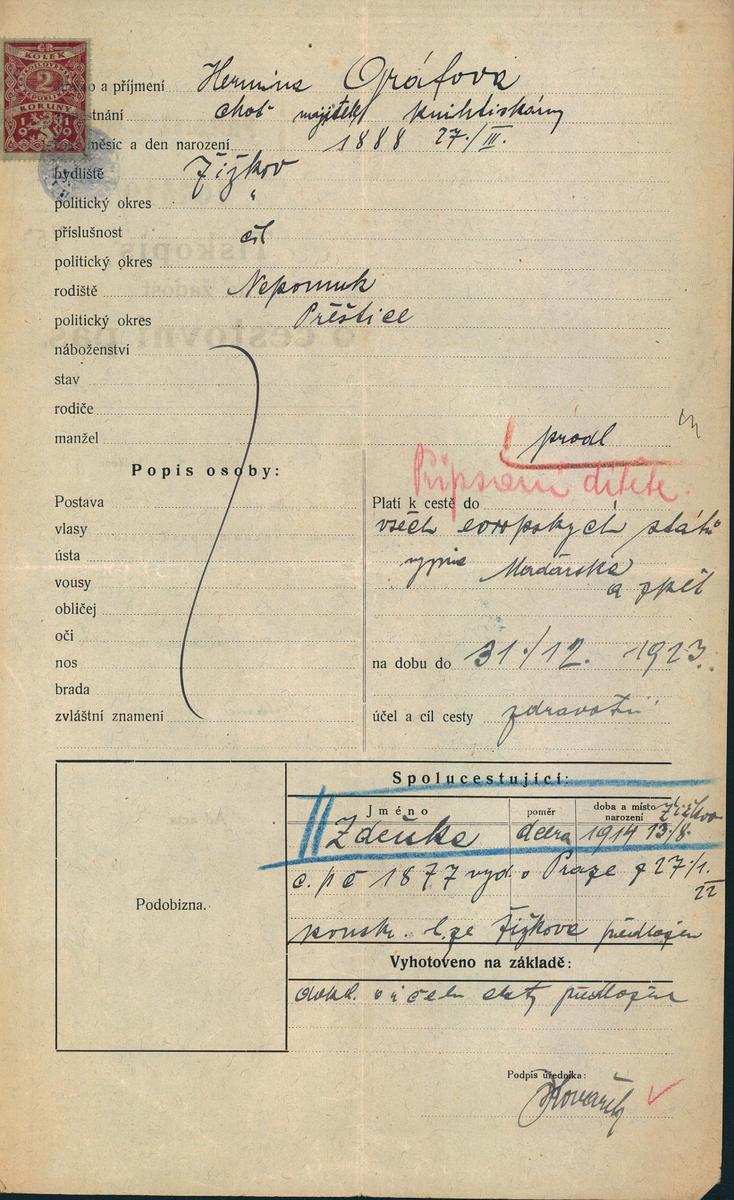 ČR
KOLEK
2
KORUNY
1919
a příjmení Hermina Gráfova
stnání choť majitele knihtiskárny
měsíc a den narození 1888 27./III.
bydliště Žižkov
politický okres "
příslušnost čsl
politický okres
rodiště Nepomuk
politický okres Přeštice
náboženství
stav
rodiče
manžel
prodl
Připsání dítěte.
Popis osoby:
Postava
vlasy
ústa
vousy
obličej
oči
nos
brada
zvláštní znamení
Platí k cestě do
všech evropských států
vyjma Maďarska
a zpět
na dobu do 31./12. 1923.
účel a cíl cesty zdravotní
Spolucestující:
Jméno poměr doba a místo narození
Zdeňka dcera 1914 13/8. Žižkov
c. p č 1877 vyd. v Praze z 27/1. 22
konskr. l. ze Žižkova předložen
Podobizna.
Vyhotoveno na základě:
dokl. o účelu cesty předložen
Podpis úředníka: